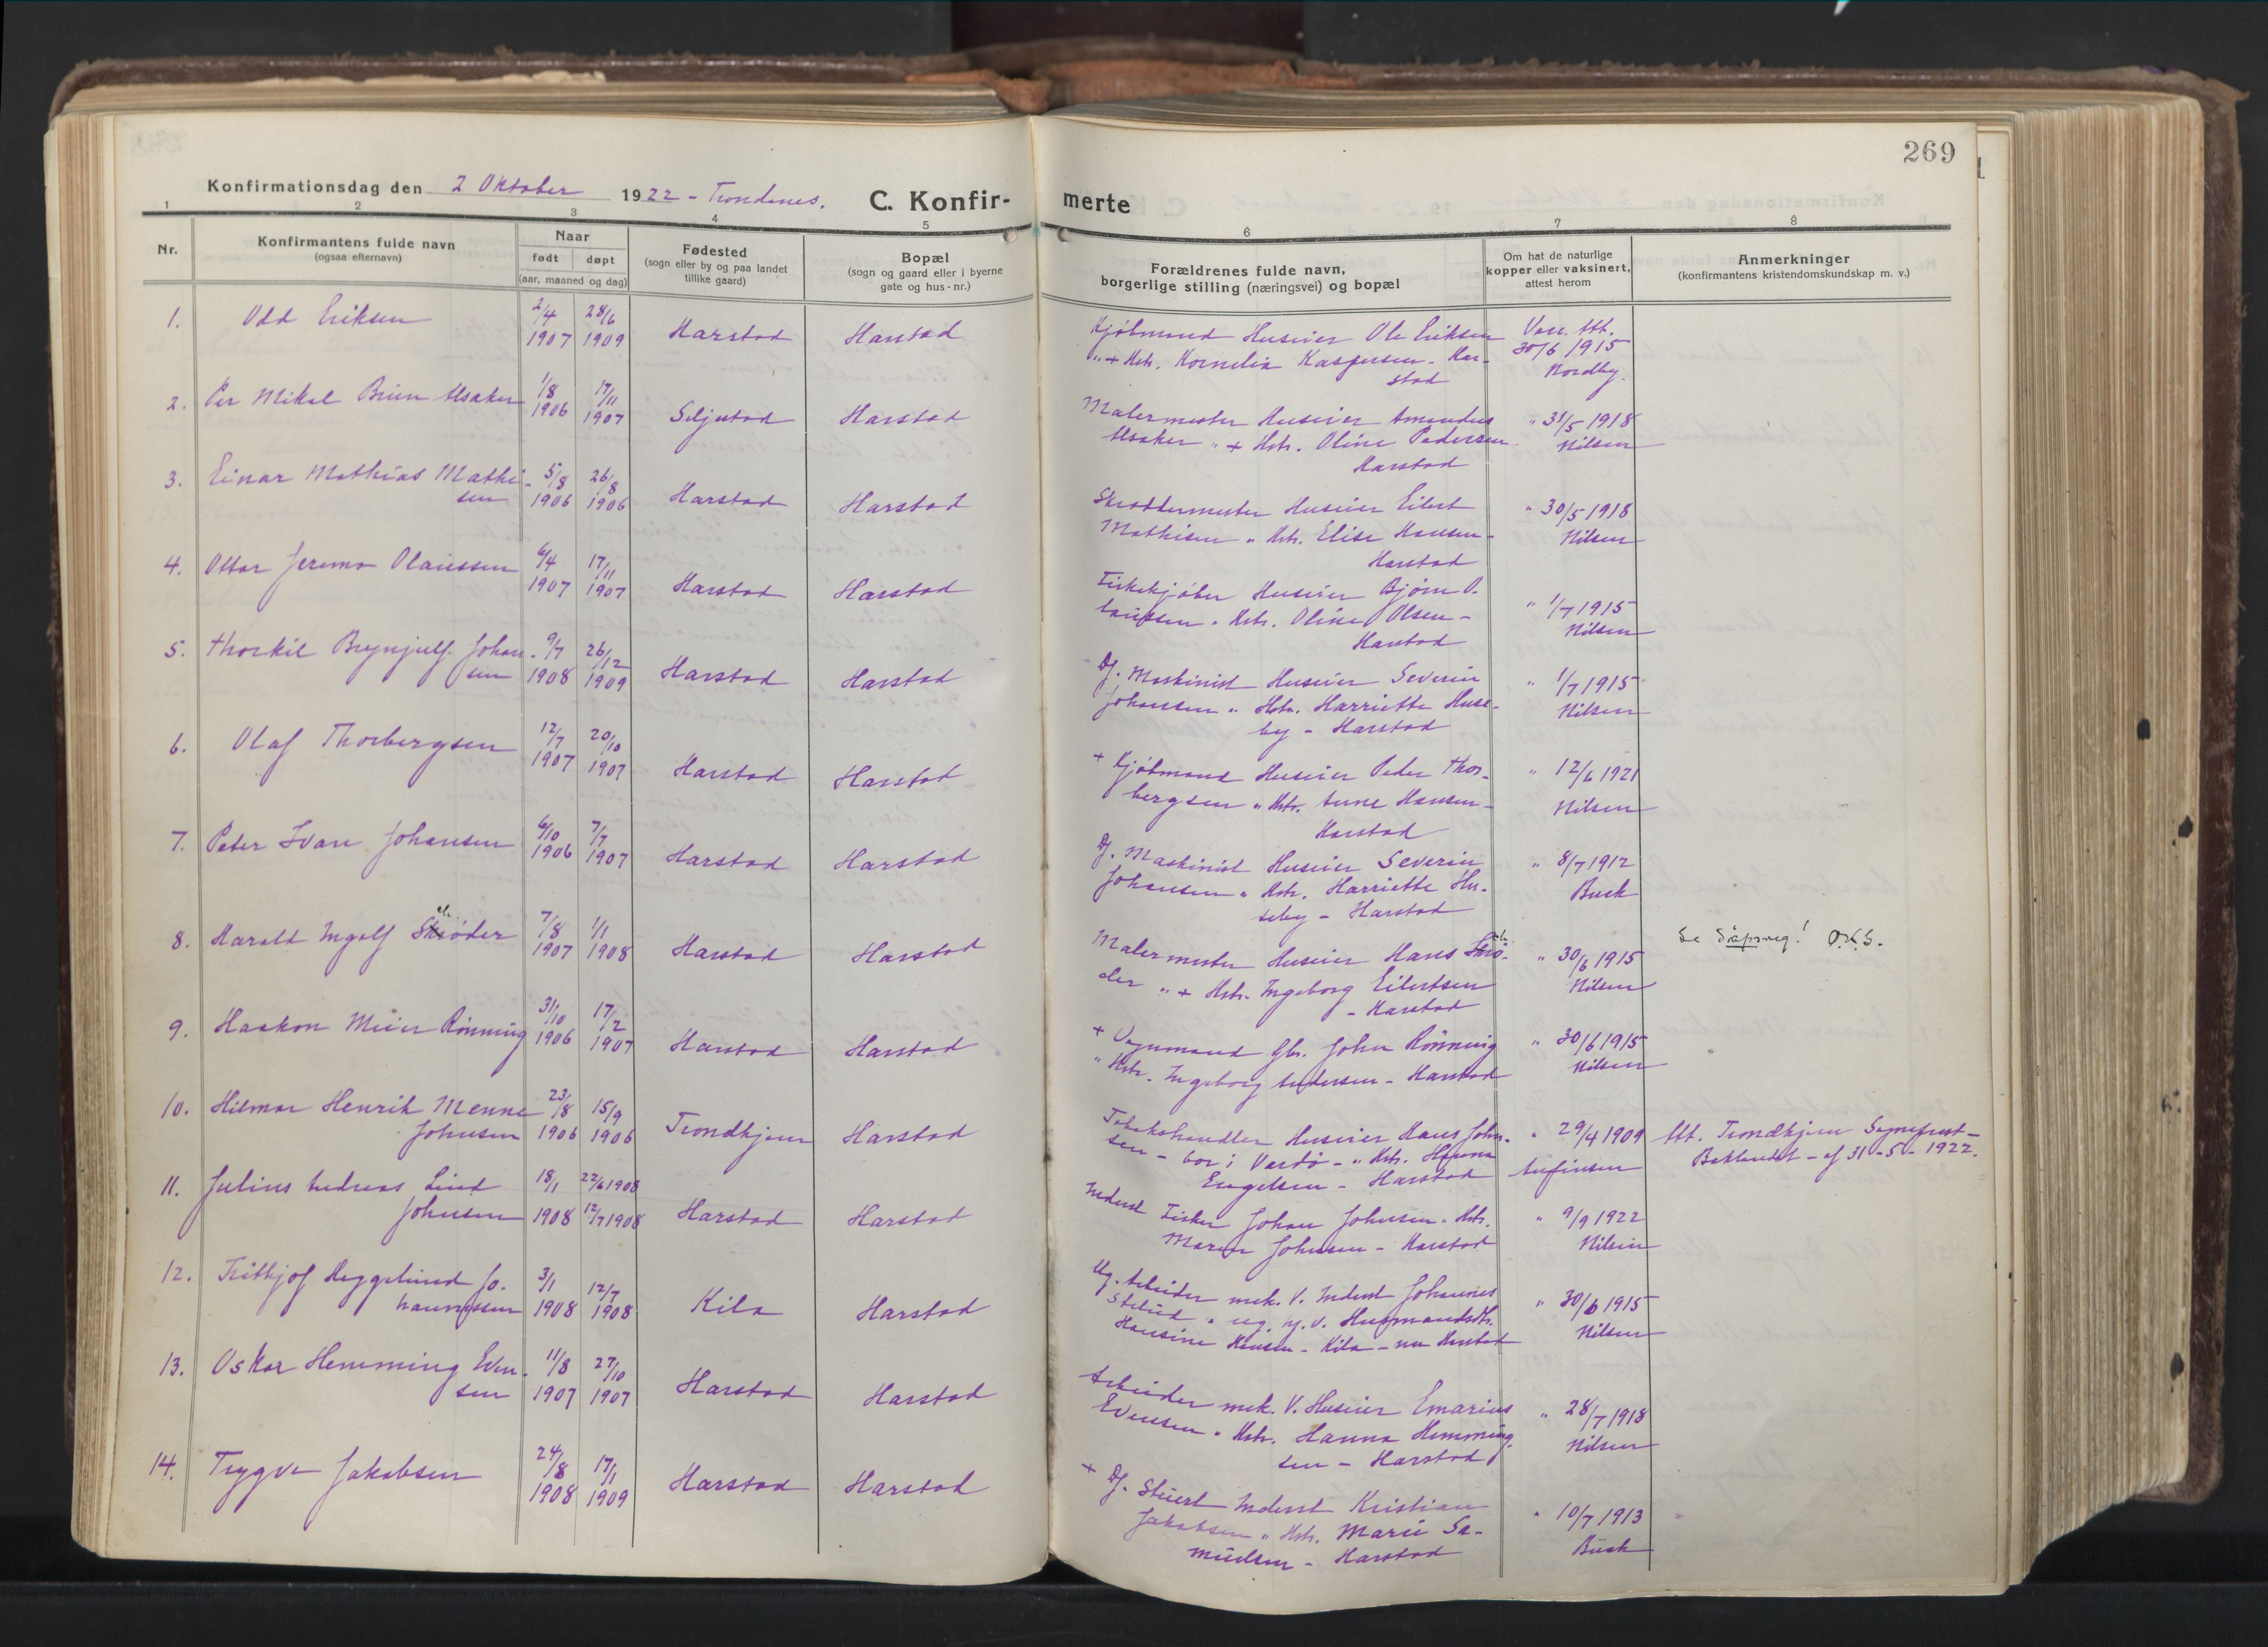 269
Konfirmationsdag den 2 Oktober 1922 - Trondenes.
C. Konfir-
merte
1 2 3 4 5 6 7 8
Nr.
Konfirmantens fulde navn
(ogsaa efternavn)
Naar
født døpt
(aar, maaned og dag)
Fødested
(sogn eller by og paa landet
tillike gaard)
Bopæl
(sogn og gaard eller i byerne
gate og hus-nr.)
Forældrenes fulde navn,
borgerlige stilling (næringsvei) og bopæl
Om hat de naturlige
kopper eller vaksinert,
attest herom
Anmerkninger
(konfirmantens kristendomskundskap m. v.)
1. Odd Eriksen 2/4 1907 28/6 1909 Harstad Harstad
Kjøbmand Huseier Ole Eriksen
" + Hstr. Kornelia Kaspersen - Har-
stad
Vacc. Att.
30/6 1915
Nordby.
2. Per Mikal Brun Alsaker 1/8 1906 17/11 1907 Seljestad Harstad
Malermester Huseier Amandus
Alsaker " + Hstr. Oline Pedersen
Harstad
" 31/5 1918
Nilsen
3. Einar Mathias Mathi-
sen 5/8 1906 26/8 1906 Harstad Harstad
Skreddermester Huseier Eilert
Mathisen " Hstr. Elise Hansen -
Harstad
" 30/5 1918
Nilsen
4. Ottar Jeremo Olaussen 6/4 1907 17/11 1907 Harstad Harstad
Fiskekjøber Huseier Bjørn O-
laussen " Hstr. Oline Olsen -
Harstad
" 1/7 1915
Nilsen
5. Thorkil Brynjulf Johan-
sen 9/7 1908 26/12 1909 Harstad Harstad
Df. Maskinist Huseier Severin
Johansen " Hstr. Harriette Huse-
by - Harstad
" 1/7 1915
Nilsen
6. Olaf Thorbergsen 12/7 1907 20/10 1907 Harstad Harstad
+ Kjøbmand Huseier Peder Thor-
bergsen " Hstr. Anne Hansen -
Harstad
" 12/6 1921
Nilsen
7. Peter Ivan Johansen 6/10 1906 7/7 1907 Harstad Harstad
Df. Maskinist Huseier Severin
Johansen " Hstr. Harriette Hu-
seby - Harstad
" 8/7 1912
Buck
8. Harald Ingolf Skrøder 7/8 1907 1/1 1908 Harstad Harstad
Malermester Huseier Hans Skrø-
der " + Hstr. Ingeborg Eilertsen
- Harstad
" 30/6 1915
Nilsen
Se dåpsreg! O.K.S.
9. Haakon Meier Rønning 31/10 1906 17/2 1907 Harstad Harstad
+ Vognmand Gbr. John Rønning
" Hstr. Ingeborg Andersen - Harstad
" 30/6 1915
Nilsen
10. Hilmar Henrik Menne
Johnsen 23/8 1906 15/9 1906 Trondhjem Harstad
Tobakshandler Huseier Hans John-
sen - bor i Vardø - " Hstr.
Engelsen - Harstad
" 29/4 1909
Anfinsen
Att. Trondhjem Sogneprest -
Baklandet - af 31-5-1922.
11. Julius Andreas Lind
Johnsen 18/1 1908 22/6 1908 12/7 1908 Harstad Harstad
Inderst Fisker Johan Johnsen " Hstr.
Maren Johnsen - Harstad
" 9/9 1922
Nilsen
12. Fritjof Heggelund Jo-
hannessen 3/1 1908 12/7 1908 Kila Harstad
Ug. Arbeider mek. V. Inderst Johannes
" ug. Husmandsdtr.
Hansine Hansen - Kila - nu Harstad
" 30/6 1915
Nilsen
13. Oskar Hemming Even-
sen 11/8 1907 27/10 1907 Harstad Harstad
Arbeider mek. V. Huseier Emarius
Evensen " Hstr. Hanna Hemming-
sen - Harstad
" 28/7 1918
Nilsen
14. Trygve Jakobsen 24/8 1908 17/1 1909 Harstad Harstad
+ Df. Stuert Inderst Kristian
Jakobsen " Hstr. Marie Sa-
muelsen - Harstad
" 10/7 1913
Buck